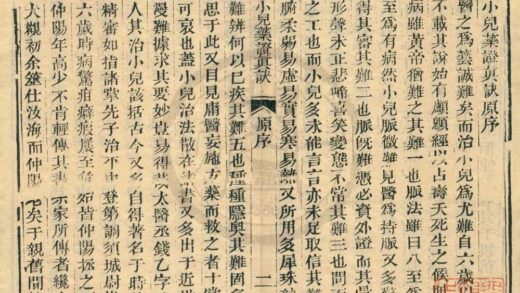 小兒藥證真訣原序
醫之爲藝誠難矣而治小兒爲尤難自六歲以
不載其說始有顱顖經以占壽夭死生之候則
病雖黃帝猶難之其難一也脈法雖曰八至
至爲有病然小兒脈微難見醫爲持脈又多
得其審其難二也脈旣難憑必資外證而其骨
形聲未正悲啼喜笑變態不常其難三也問
之工也而小兒多未能言言亦未足取信其難
臟腑柔弱易虛易實易寒易熱又所用多犀珠
小兒藥證真訣 原序 二
難辨何以已疾其難五也種種隱奧其難固多
思于此又目見庸醫妄施方藥而殺之者十常
可哀也蓋小兒治法散在諸書又多出于近世
漫難據求其要妙豈易得哉太醫丞錢乙字
人其治小兒該括古今又多自得著名于時
精審如指諸掌先子治平中登第調須城尉
六歲時病驚疳癖瘕屢至危殆皆仲陽拯之
仲陽年尚少不肯輕傳其書余家所傳者纔
大觀初余筮仕汝海而仲陽老矣于親舊間